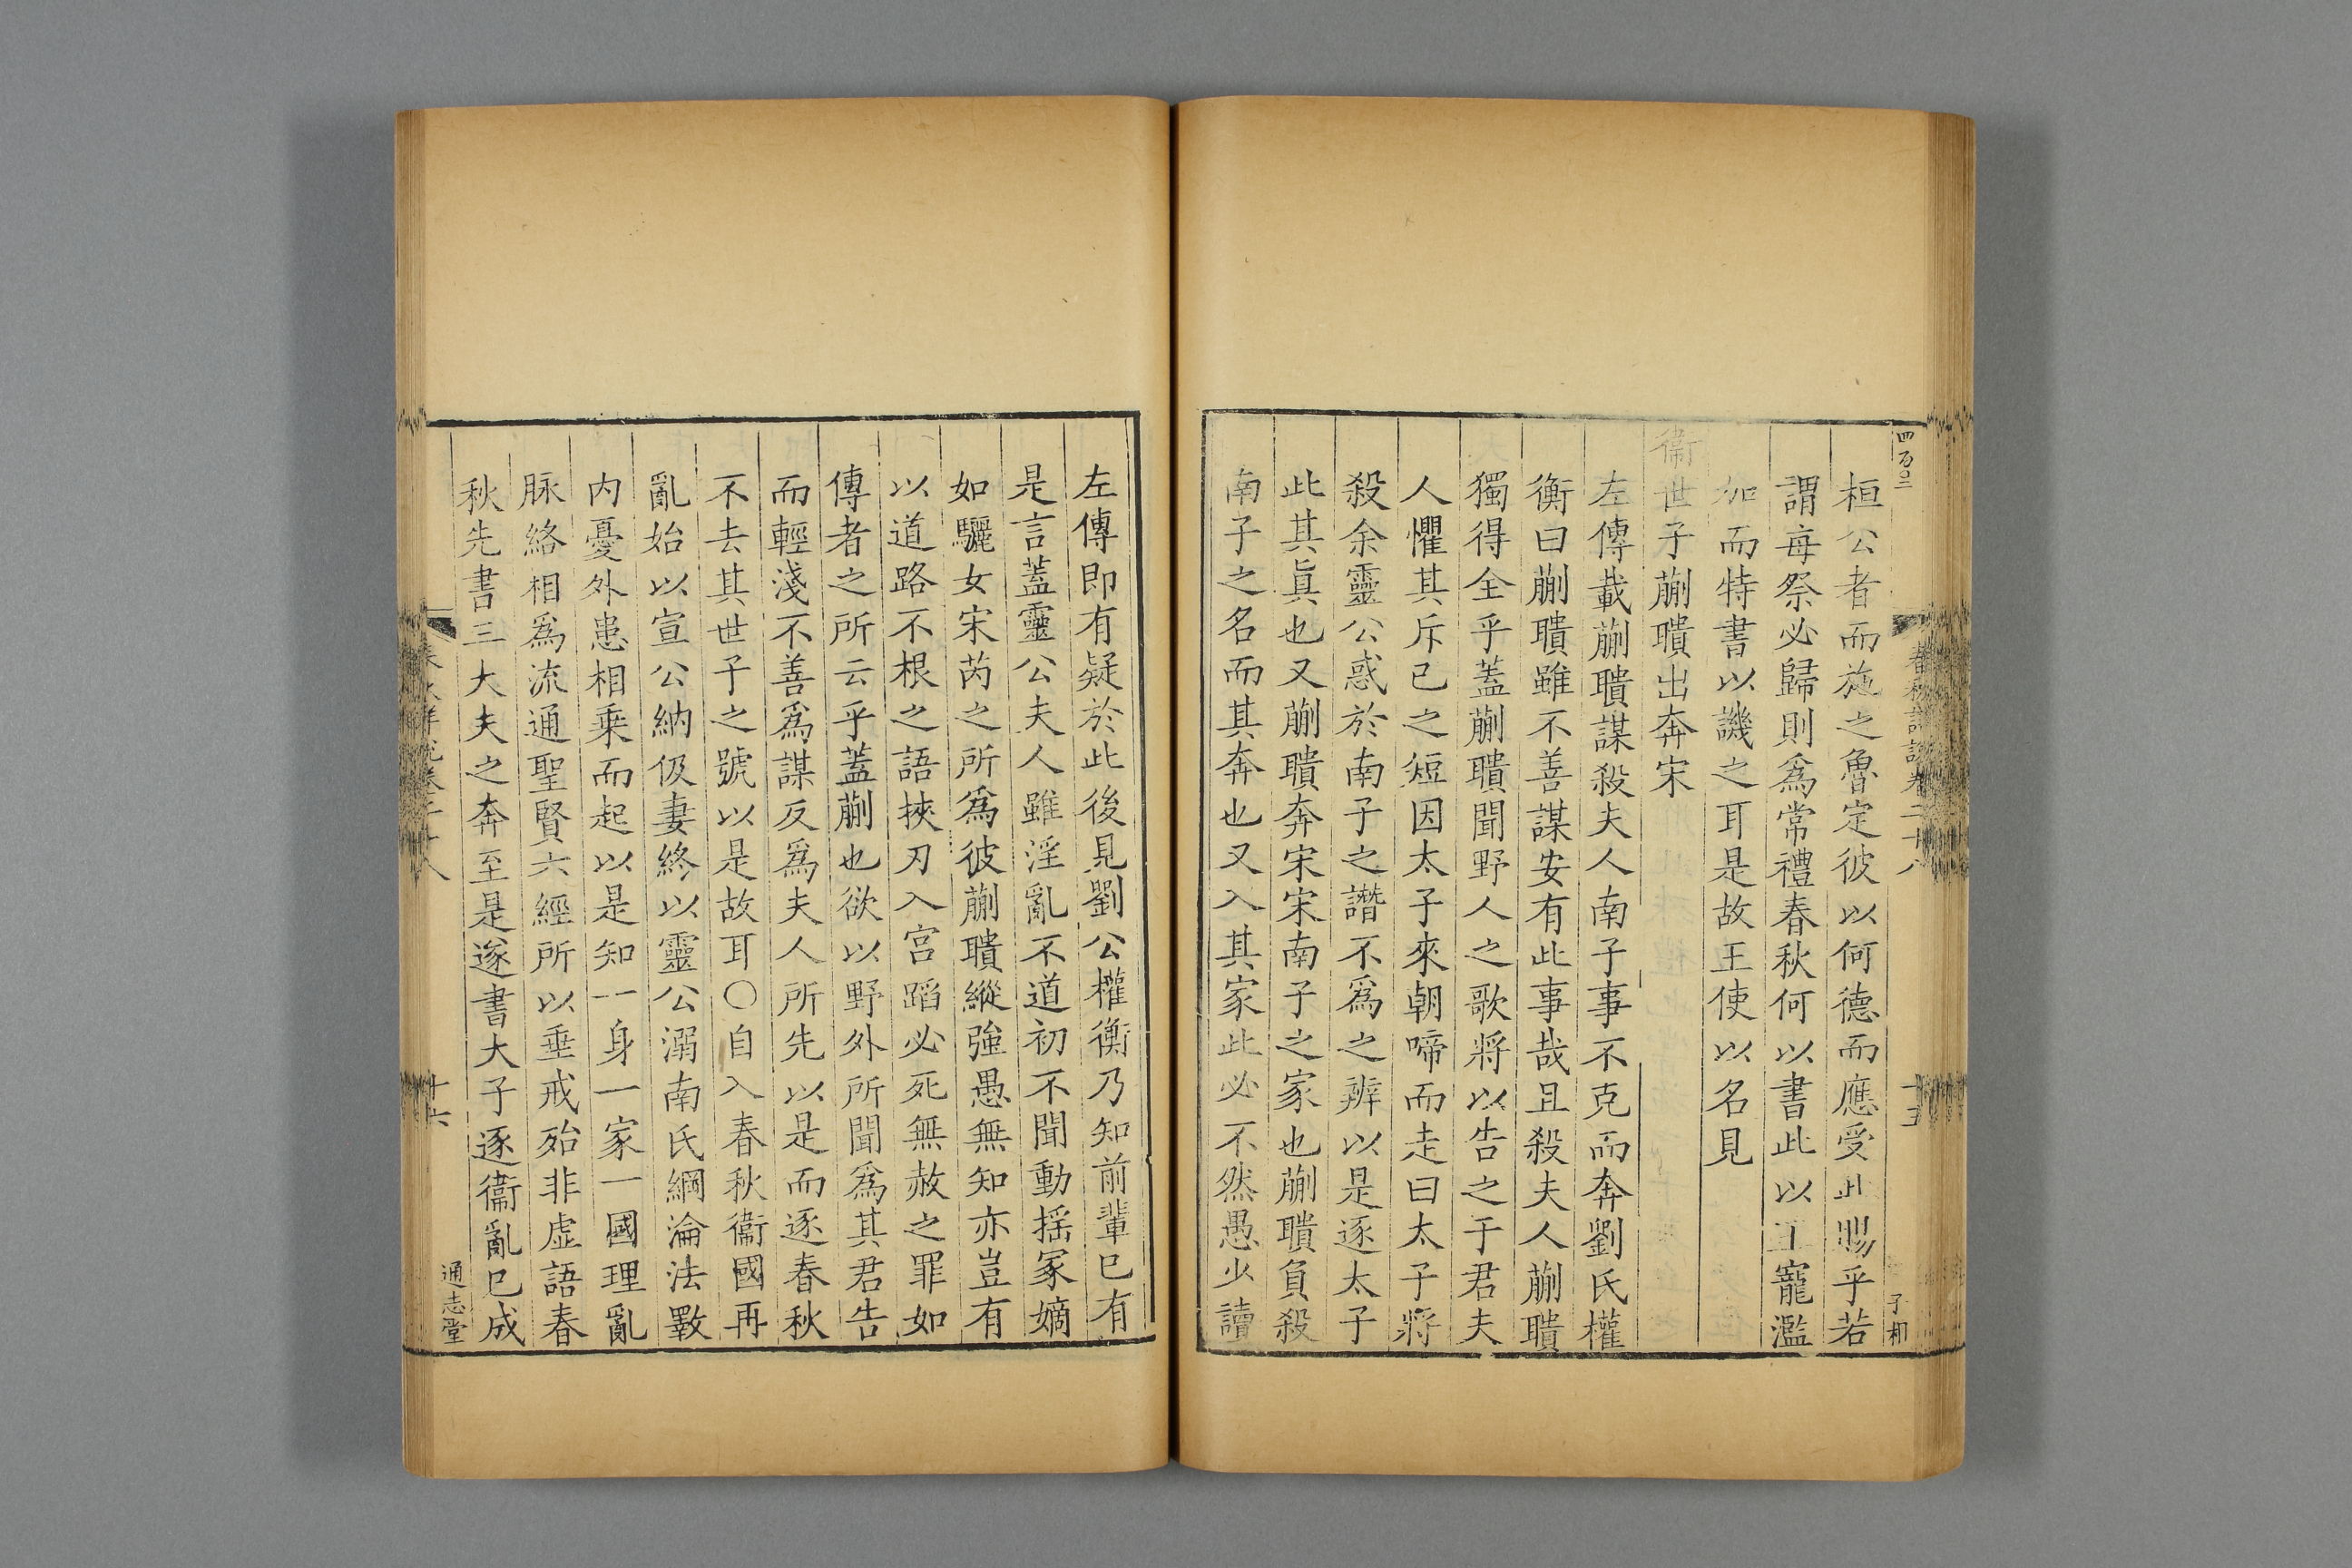 四百三
春秋詳說卷二十八
十五
子相
桓公者而施之魯定彼以何德而應受此賜乎若
謂每祭必歸則爲常禮春秋何以書此以王寵濫
加而特書以譏之耳是故王使以名見
衞世子蒯聵出奔宋
左傳載蒯聵謀殺夫人南子事不克而奔劉氏權
衡曰蒯聵雖不善謀安有此事哉且殺夫人蒯聵
獨得全乎蓋蒯聵聞野人之歌將以告之于君夫
人懼其斥已之短因太子來朝啼而走曰太子將
殺余靈公惑於南子之譖不爲之辨以是逐太子
此其眞也又蒯聵奔宋宋南子之家也蒯聵負殺
南子之名而其奔也又入其家此必不然愚少讀
左傳即有疑於此後見劉公權衡乃知前輩已有
是言蓋靈公夫人雖淫亂不道初不聞動揺冢嫡
如驪女宋芮之所爲彼蒯聵縱強愚無知亦豈有
以道路不根之語挾刃入宮蹈必死無赦之罪如
傳者之所云乎蓋蒯也欲以野外所聞爲其君告
而輕淺不善爲謀反爲夫人所先以是而逐春秋
不去其世子之號以是故耳〇自入春秋衞國再
亂始以宣公納伋妻終以靈公溺南氏綱淪法斁
内憂外患相乘而起以是知一身一家一國理亂
脉絡相爲流通聖賢六經所以垂戒殆非虚語春
秋先書三大夫之奔至是遂書大子逐衞亂已成
春秋詳說卷二十八
十六
通志堂